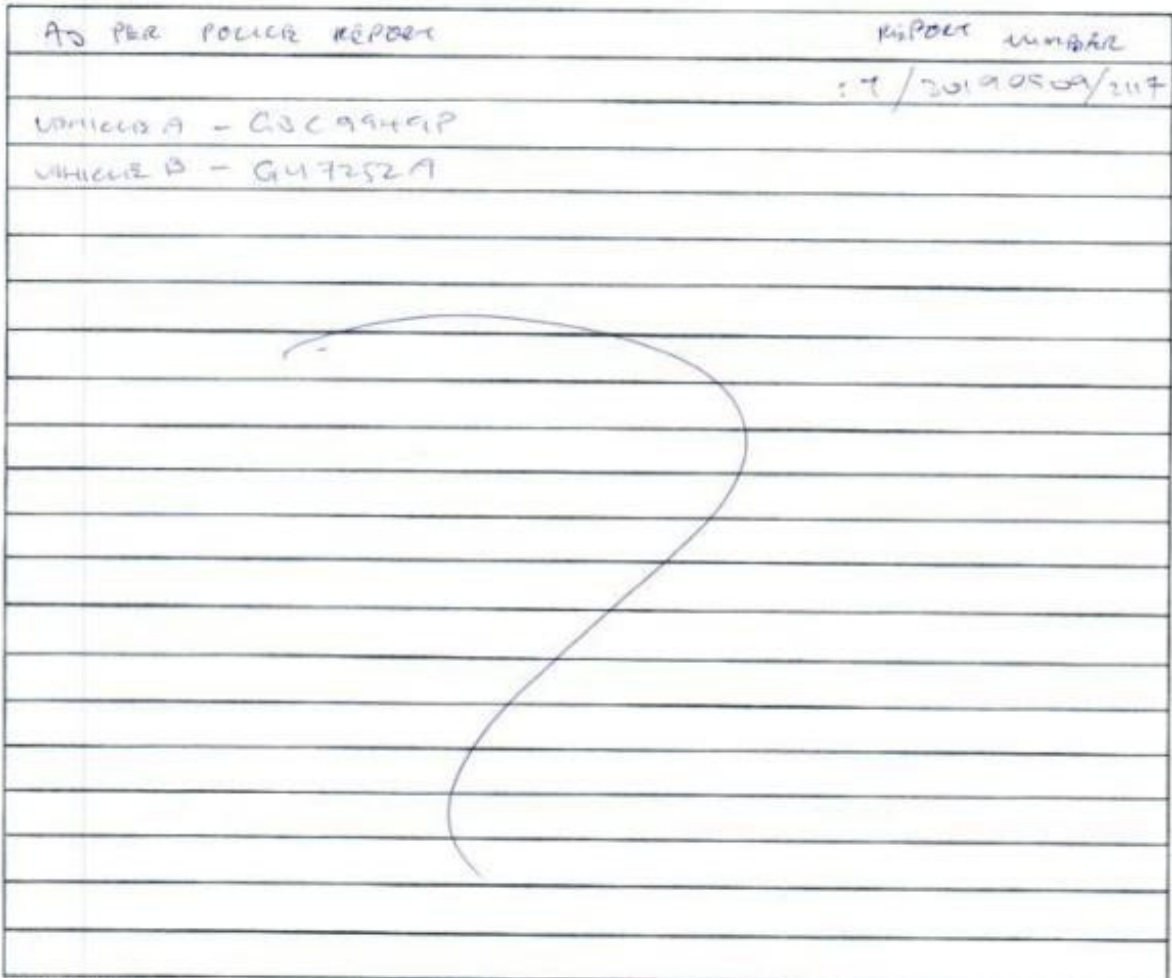 AS PER POLICE REPORT REPORT NUMBER
: T/20190509/2117
VEHICLE A - GBC9949P
VEHICLE B - GU7252A